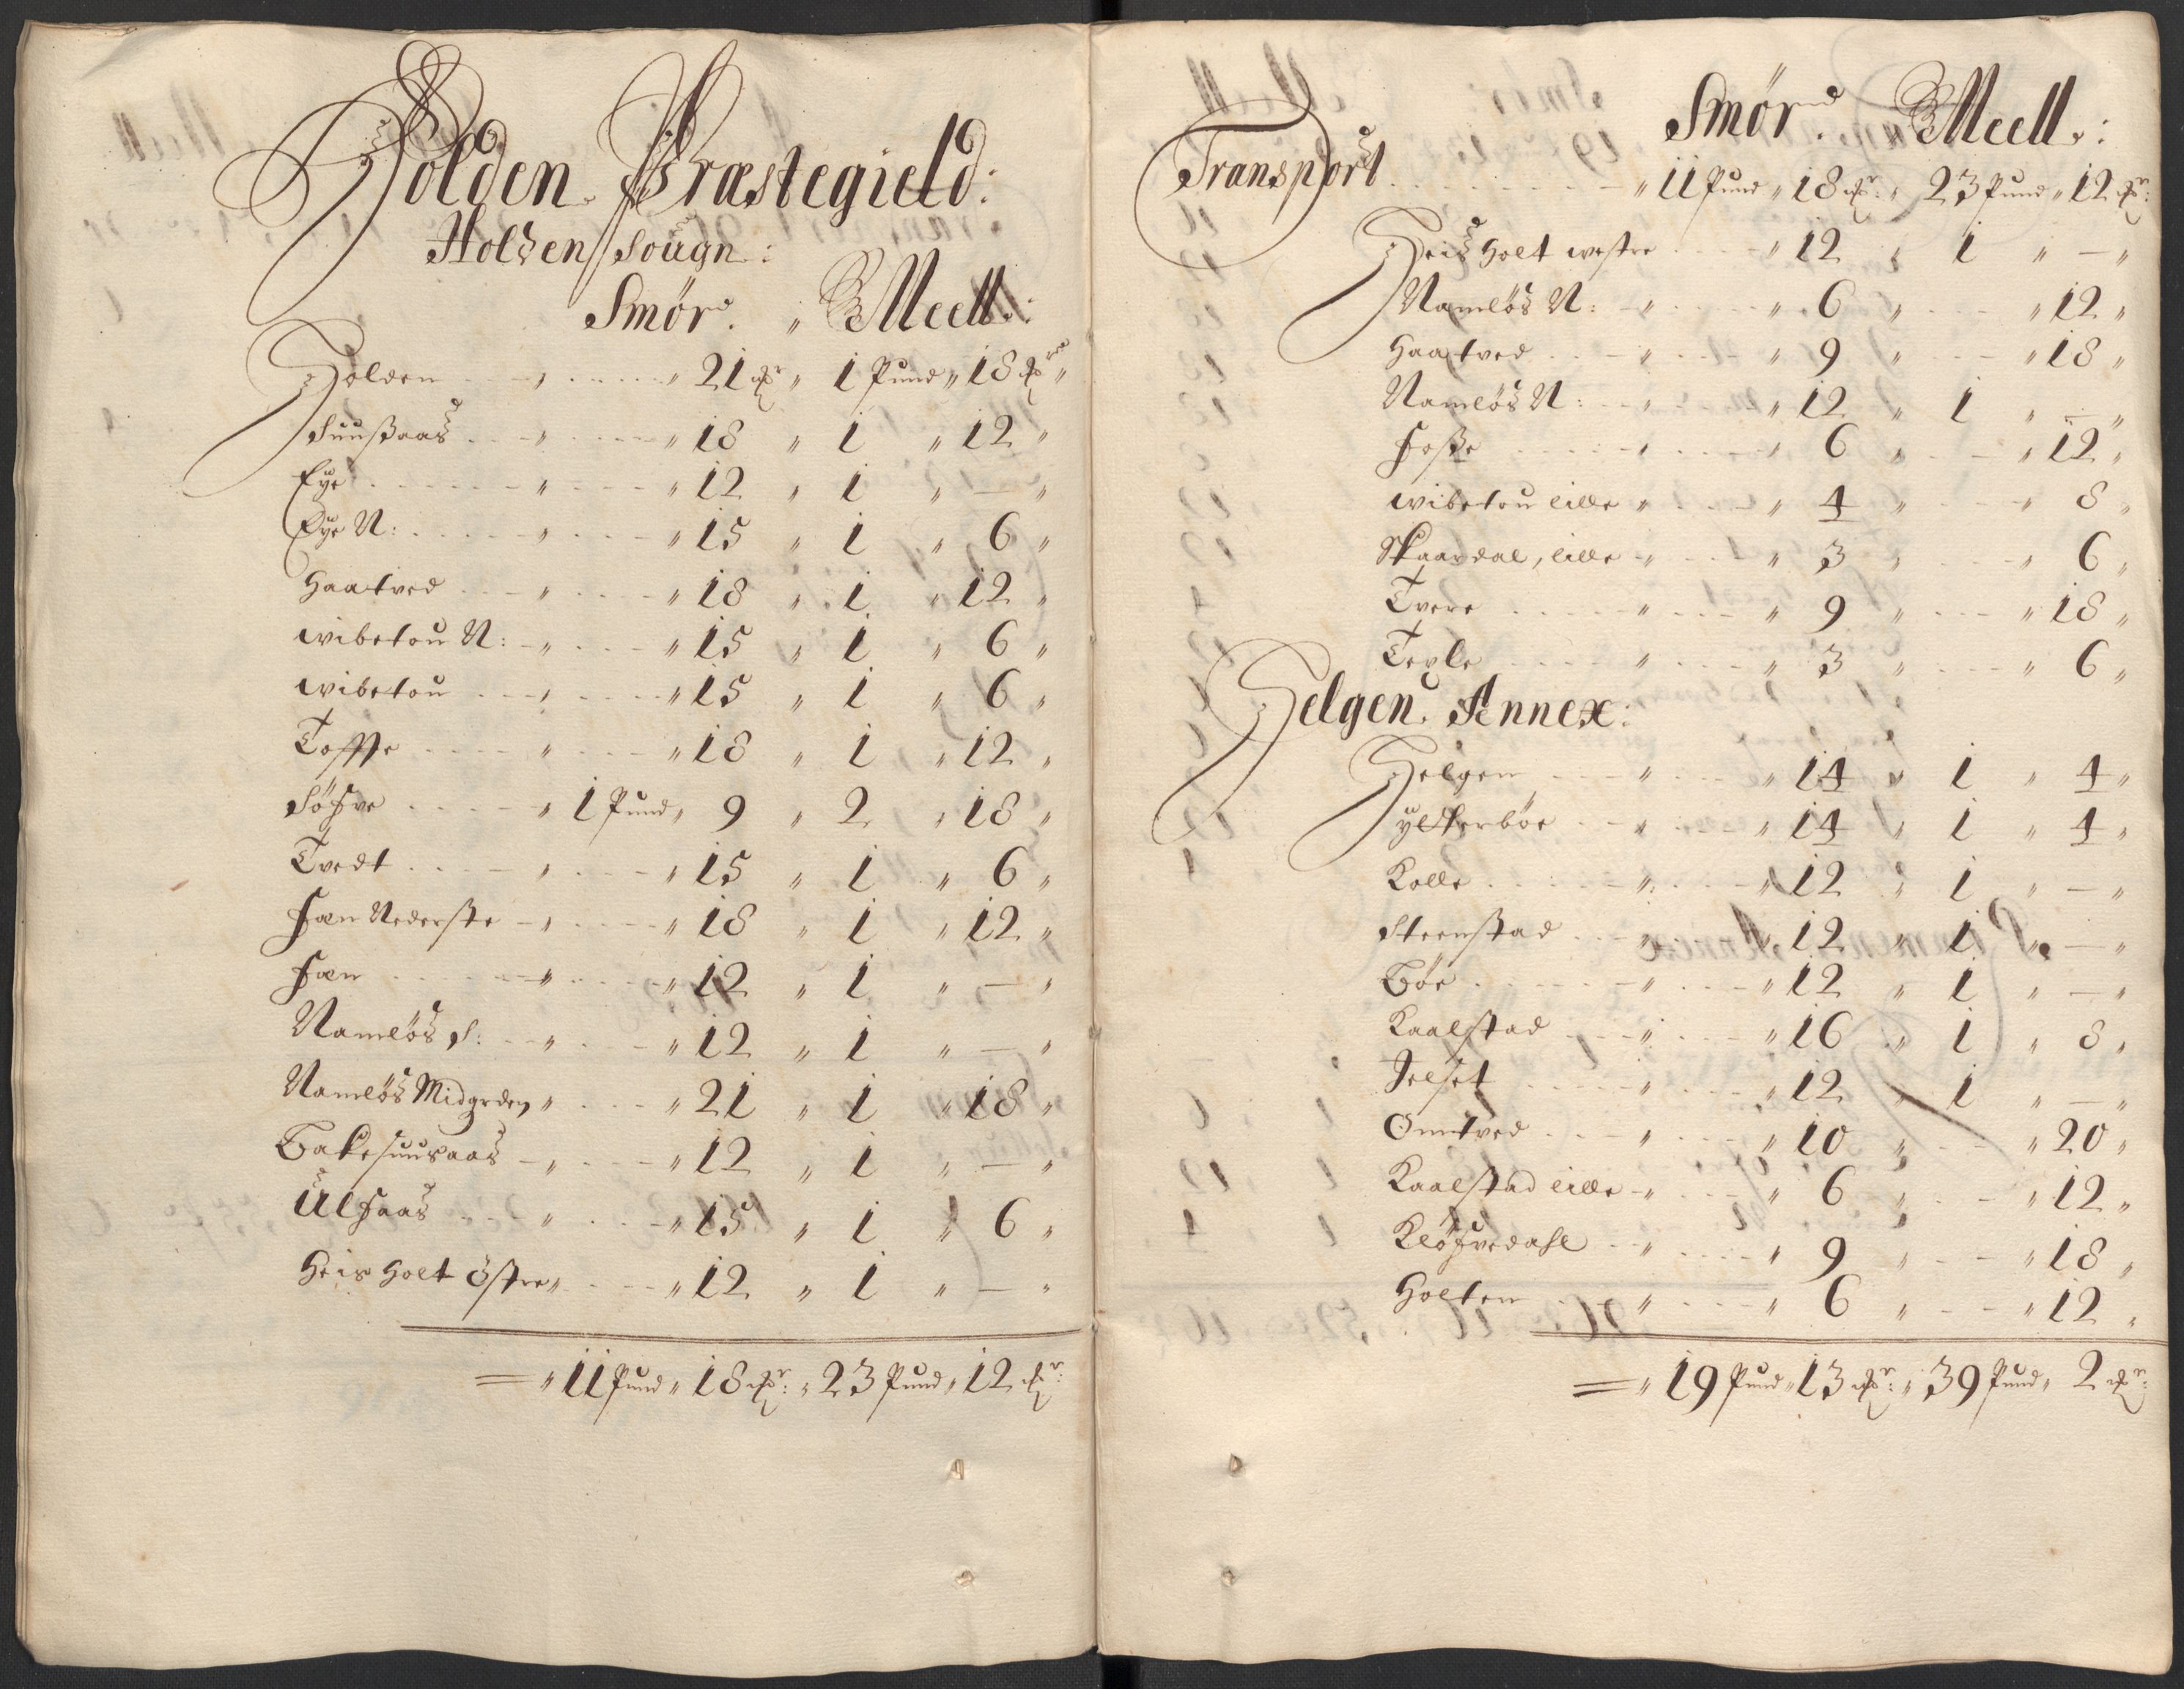 Holden Præstegield:
Holden Sougn:
Smør. Meell:
Holden 21 ℔r 1 Pund 18 ℔r
Suusaas 18 1 12
Eye 12 1 —
Eye N: 15 1 6
Haatved 18 1 12
Wibetou N: 15 1 6
Wibetou 15 1 6
Tofte 18 1 12
Søfve 1 Pund 9 2 18
Tvedt 15 1 6
Fæn Nederste 18 1 12
Fæn 12 1 —
Namløs S: 12 1 —
Namløs Midgrden 21 1 18
Bakesuusaas 12 1 —
Ulsaas 15 1 6
Heisholt östre 12 1 —
= 11 Pund 18 ℔r: 23 Pund 12 ℔r:
Smør. Meell:
Transport 11 Pund 18 ℔r: 23 Pund 12 ℔r:
Heisholt westre 12 1 —
Namløs N: 6 12
Haatved 9 18
Namløs N: 12 1 —
Fosse 6 12
Wibetou lille 4 8
Skaardal, lille 3 6
Tvere 9 18
Teyle 3 6
Helgen Annex:
Helgen 14 1 4
ytterböe 14 1 4
Kolle 12 1 —
Steenstad 12 1 —
Böe 12 1 —
Kaalstad 16 1 8
Jelset 12 1 —
Omtved 10 20
Kaalstad lille 6 12
Kløfvedahl 9 18
Holten 6 12
= 19 Pund 13 ℔r: 39 Pund 2 ℔r: